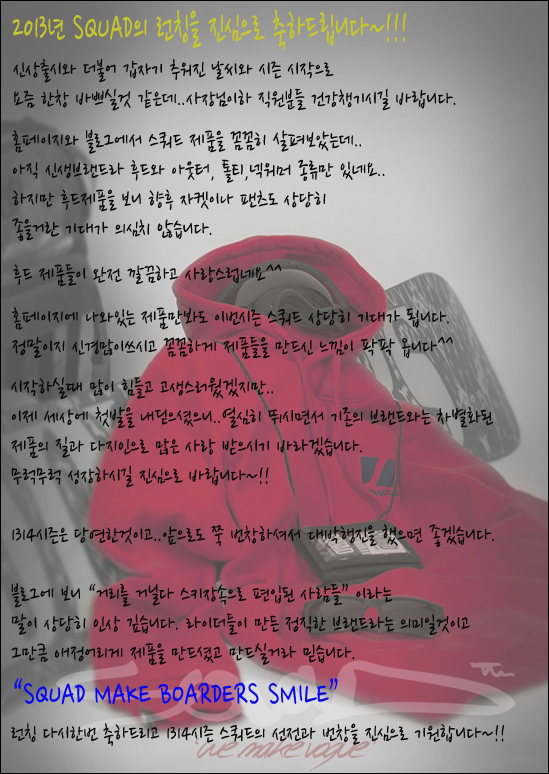 2013년 SQUAD의 런칭을 진심으로 축하드립니다~!!!
신상출시와 더불어 갑자기 추워진 날씨와 시즌 시작으로
요즘 한창 바쁘실것 같은데..사장님이하 직원분들 건강챙기시길 바랍니다.
홈페이지와 블로그에서 스쿼드 제품을 꼼꼼히 살펴보았는데..
아직 신생브랜드라 후드와 아웃터, 톨티,넥워머 종류만 있네요..
하지만 후드제품을 보니 향후 자켓이나 팬츠도 상당히
좋을거란 기대가 의심치 않습니다.
후드 제품들이 완전 깔끔하고 사랑스럽네요^^
홈페이지에 나와있는 제품만봐도 이번시즌 스쿼드 상당히 기대가 됩니다.
정말이지 신경많이쓰시고 꼼꼼하게 제품들을 만드신 느낌이 팍팍 옵니다^^
시작하실때 많이 힘들고 고생스러웠겠지만..
이제 세상에 첫발을 내딛으셨으니..열심히 뛰시면서 기존의 브랜드와는 차별화된
제품의 질과 디자인으로 많은 사랑 받으시기 바라겠습니다.
무럭무럭 성장하시길 진심으로 바랍니다~!!
1314시즌은 당연한것이고..앞으로도 쭉 번창하셔서 대박행진을 했으면 좋겠습니다.
블로그에 보니 “거리를 거닐다 스키장속으로 편입된 사람들” 이라는
말이 상당히 인상 깊습니다. 라이더들이 만든 정직한 브랜드라는 의미일것이고
그만큼 애정어리게 제품을 만드셨고 만드실거라 믿습니다.
“SQUAD MAKE BOARDERS SMILE”
런칭 다시한번 축하드리고 1314시즌 스쿼드의 선전과 번창을 진심으로 기원합니다~!!
"we make vogue"